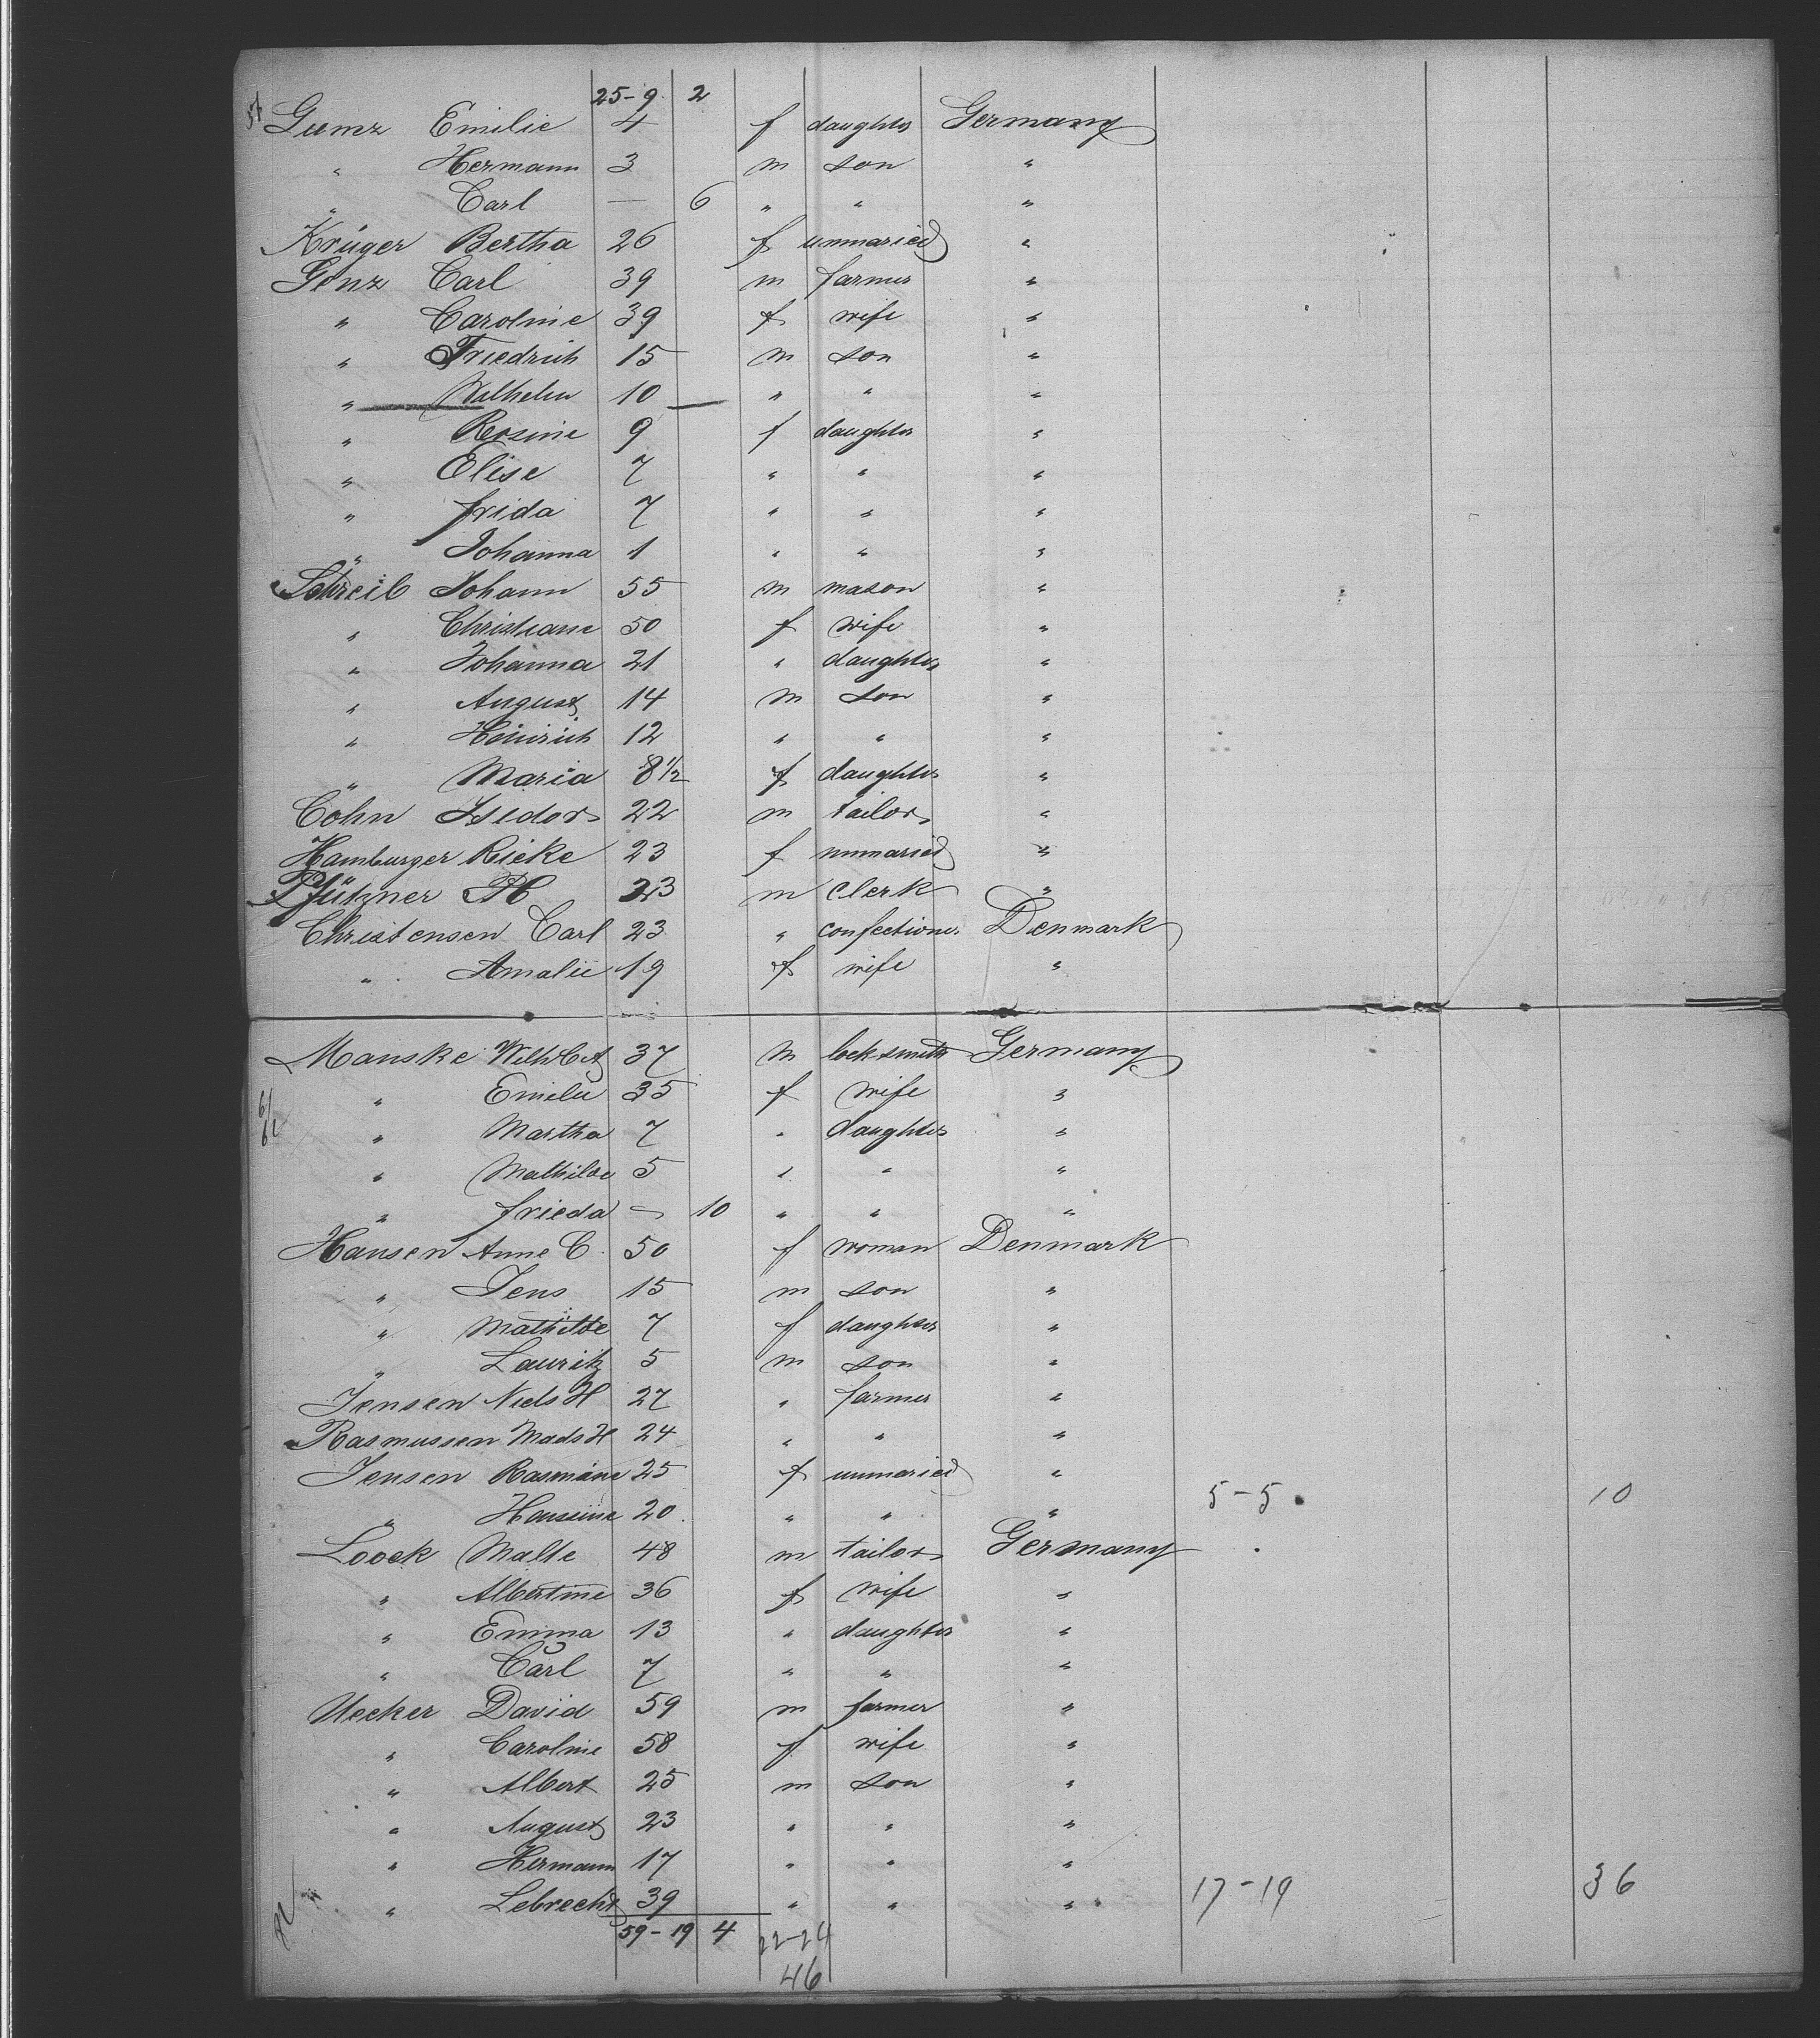 25-9 2
Gumz Emilie 4 f daughter Germany
" Hermann 3 m son "
" Carl — 6 " " "
Krüger Bertha 26 f unmaried "
Genz Carl 39 m farmer "
" Caroline 39 f wife "
" Friedrich 15 m son "
" Wilhelm 10 " " "
" Rosine 9 f daughter "
" Elise 7 " " "
" Frida 7 " " "
" Johanna 1 " " "
Schreib Johann 55 m mason "
" Christiane 50 f wife "
" Johanna 21 " daughter "
" August 14 m son "
" Heinrich 12 " " "
" Maria 8 1/2 f daughter "
Cohn Isidor 22 m tailor "
Hamburger Rieke 23 f unmaried "
Pfützner 23 m clerk "
Christensen Carl 23 " confectioner Denmark
" Amalie 19 f wife "
Manske Wilh C A 37 m locksmith Germany
" Emilie 35 f wife "
" Martha 7 " daughter "
" Mathilde 5 " " "
" Frieda — 10 " " "
Hansen Anne C. 50 f woman Denmark
" Jens 15 m son "
" Mathilde 7 f daughter "
" Lauritz 5 m son "
Jensen Niels H 27 " farmer "
Rasmussen Mads H 24 " " "
Jensen Rasmine 25 f unmaried "
" Hansine 20 " " " 5-5 10
Loock Malte 48 m tailor Germany
" Albertine 36 f wife "
" Emma 13 " daughter "
" Carl 7 " " "
Uecker David 59 m farmer "
" Caroline 58 f wife "
" Albert 25 m son "
" August 23 " " "
" Hermann 17 " " "
" Lebrecht 39 " " " 17-19 36
59-19 4 22-24
46